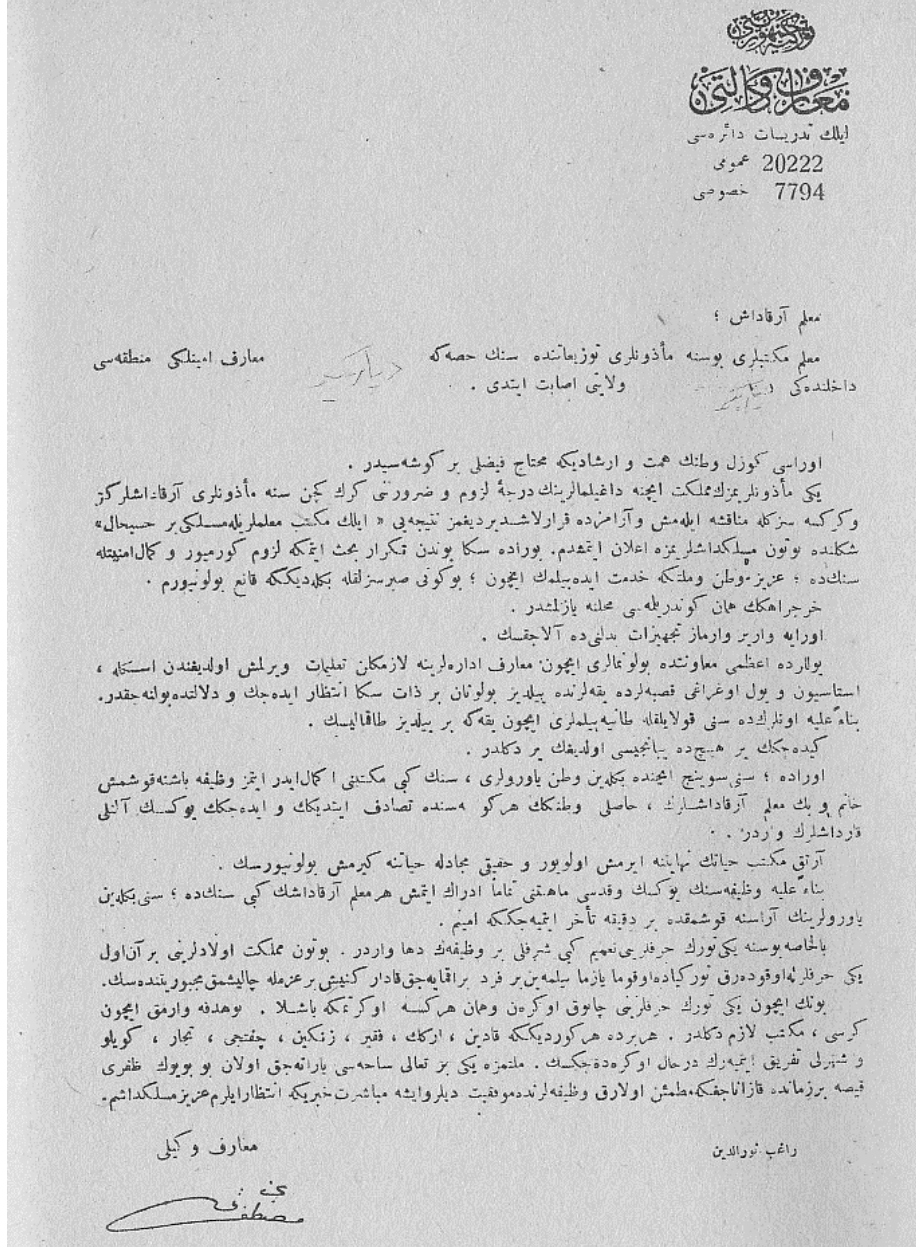 توركيه جمهوريتى
معارف وكالتى
ايلك تدريسات دائره‌سى
20222 عمومى
7794 خصوصى
معلم آرقاداش ؛
معلم مكتبلرى بوسنه مأذونلرى توزيعاتنده سنك حصه‌كه دياربكر معارف امينلكى منطقه‌سى
داخلنده‌كى دياربكر ولايتى اصابت ايتدى .
اوراسى كوزل وطنك همت و ارشاديكه محتاج فيضلى بر كوشه‌سيدر .
يكى مأذونلريمزك مملكت ايچنه داغيلمالرينك درجهٔ لزوم و ضرورتنى كرك كچن سنه مأذونلرى آرقاداشلركز
وكركسه سزكله مناقشه ايله‌مش وآرامزده قرارلاشديرديغمز نتيجه‌يى « ايلك مكتب معلملريله مسلكى بر حسبحال»
شكلنده بوتون مسلكداشلريمزه اعلان ايتمشدم. بوراده سكا بوندن تكرار بحث ايتمكه لزوم كورميور و كمال امنيتله
سنك‌ده ؛ عزيز وطن وملتكه خدمت ايده‌بيلمك ايچون ؛ بوكونى صبرسزلقله بكله‌ديككه قانع بولونيورم .
خرجراهكك همان كوندريلمه‌سى محلنه يازلمشدر .
اورايه وارير وارماز تجهيزات بدلنى‌ده آلاجقسك .
يوللرده اعظمى معاونتده بولونمالرى ايچون معارف اداره‌لرينه لازمكلن تعليمات ويرلمش اولديغندن اسكله ،
استاسيون و يول اوغراغى قصبه‌لرده يقه‌لرنده ييلديز بولونان بر ذات سكا انتظار ايده‌جك و دلالتده‌بولنه‌جقدر.
بناءً عليه اونلرك‌ده سنى قولايلقله طانيه‌بيلملرى ايچون يقه‌كه بر ييلديز طاقماليسك .
كيده‌جكك ير هيچ‌ده يبانجيسى اولديغك ير دكلدر .
اوراده ؛ سنى سوينج ايچنده بكله‌ين وطن ياورولرى ، سنك كبى مكتبنى اكمال ايدر ايتمز وظيفه باشنه قوشمش
خانم و بك معلم آرقاداشلرك ، حاصلى وطنكك هركوشه‌سنده تصادف ايتديكك و ايده‌جكك يوكسك آلنلى
قارداشلرك واردر .
آرتق مكتب حياتك نهايتنه ايرمش اولويور و حقيقى مجادله حياتنه كيرمش بولونيورسك .
بناءً عليه وظيفه‌سنك يوكسك وقدسى ماهيتنى تماماً ادراك ايتمش هرمعلم آرقاداشك كبى سنك‌ده ؛ سنى بكله‌ين
ياورولرينك آراسنه قوشمقده بر دقيقه تأخر ايتميه‌جككه امينم .
بالخاصه بوسنه يكى تورك حرفلرينى تعميم كبى شرفلى بر وظيفه‌ك دها واردر . بوتون مملكت اولادلرينى بر آن اول
يكى حرفلرله اوقوده‌رق توركياده اوقوما يازما بيلمه‌ين بر فرد براقمايه‌جق قادار كنيش بر عزمله چاليشمق مجبوريتنده‌سك.
بونك ايچون يكى تورك حرفلرينى چابوق اوكرن وهمان هركسه اوكرتمكه باشلا . بوهدفه وارمق ايچون
كرسى ، مكتب لازم دكلدر . هريرده هركورديككه قادين ، اركك ، فقير ، زنكين ، چفتجى ، تجار ، كويلو
و شهرلى تفريق ايتميه‌رك درحال اوكره‌ده‌جكسك . ملتمزه يكى بر تعالى ساحه‌سى ياراته‌جق اولان بو بويوك ظفرى
قيصه برزمانده قازاناجغكه مطمئن اولارق وظيفه‌لرنده موفقيت ديلر وايشه مباشرت خبريكه انتظار ايلرم عزيز مسلكداشم.
راغب نورالدين
معارف وكيلى
مصطفى نجاتى